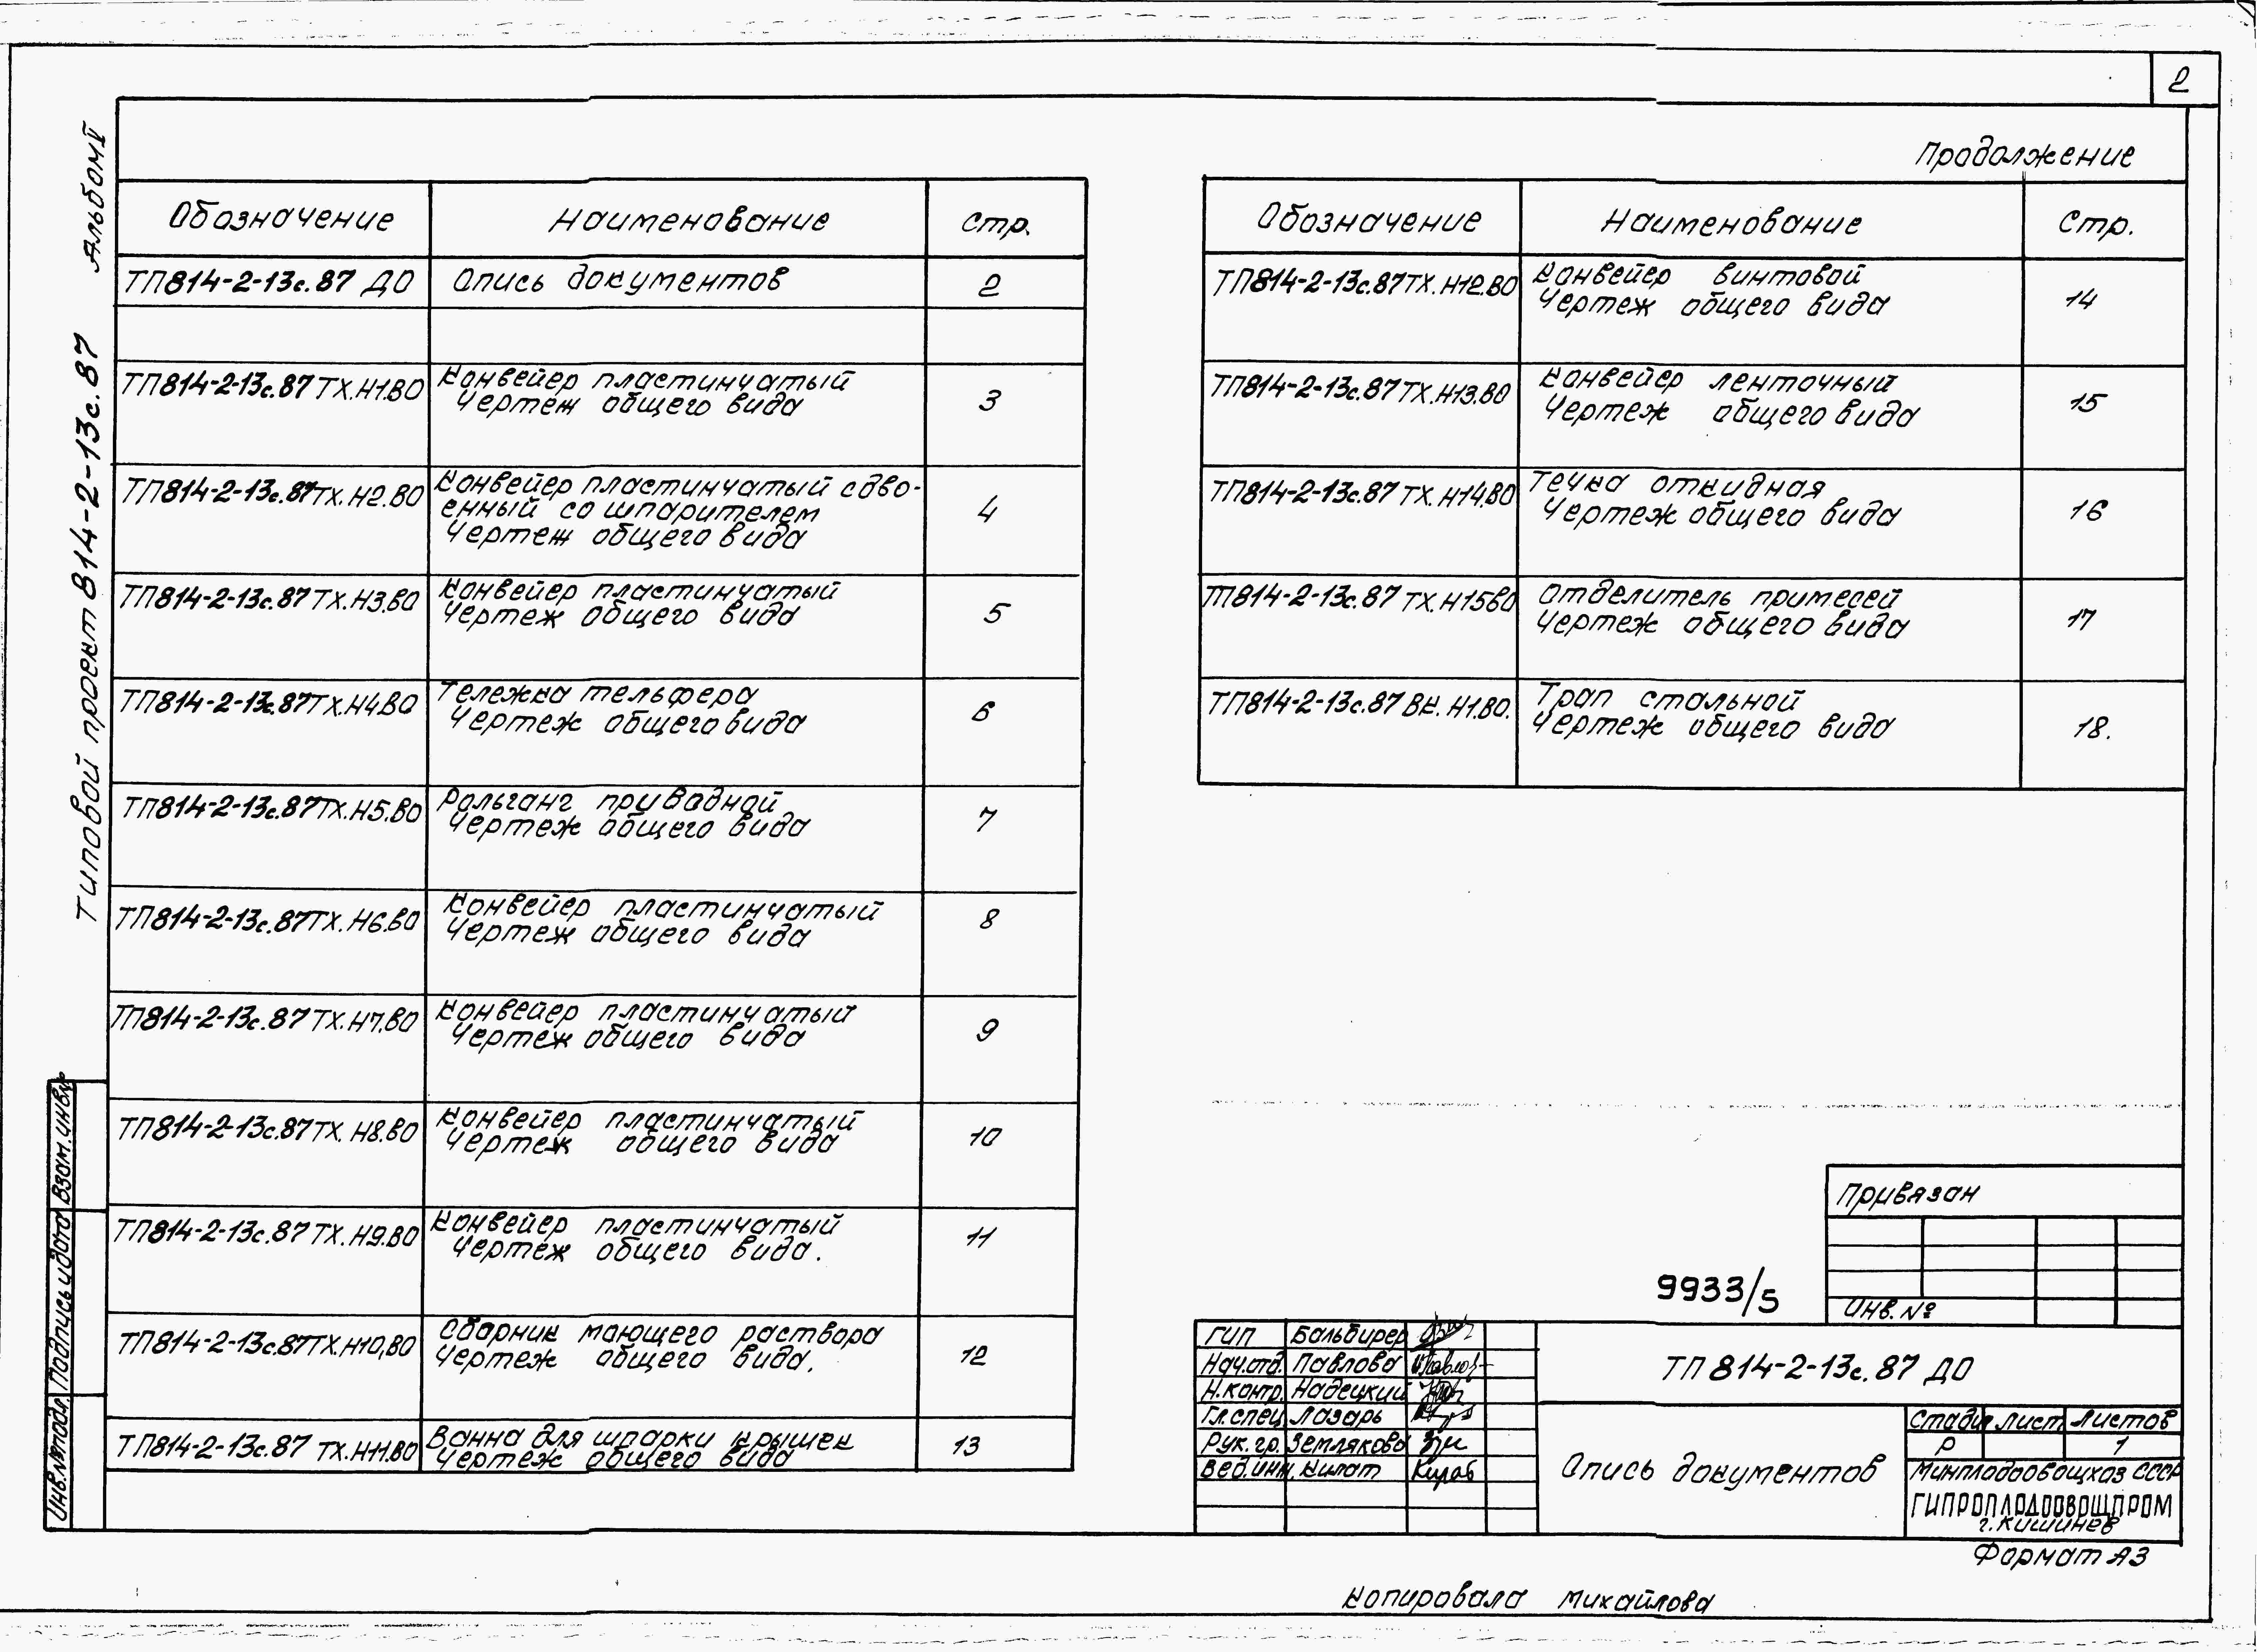 2
Альбом V
Типовой проект 814-2-13с.87
Обозначение Наименование Стр.
ТП814-2-13с.87 ДО Опись документов 2
ТП814-2-13с.87 ТХ.Н1.ВО Конвейер пластинчатый
Чертеж общего вида 3
ТП814-2-13с.87 ТХ.Н2.ВО Конвейер пластинчатый сдво-
енный со шпарителем
Чертеж общего вида 4
ТП814-2-13с.87 ТХ.Н3.ВО Конвейер пластинчатый
Чертеж общего вида 5
ТП814-2-13с.87 ТХ.Н4.ВО Тележка тельфера
Чертеж общего вида 6
ТП814-2-13с.87 ТХ.Н5.ВО Рольганг приводной
Чертеж общего вида 7
ТП814-2-13с.87 ТХ.Н6.ВО Конвейер пластинчатый
Чертеж общего вида 8
ТП814-2-13с.87 ТХ.Н7.ВО Конвейер пластинчатый
Чертеж общего вида 9
ТП814-2-13с.87 ТХ.Н8.ВО Конвейер пластинчатый
Чертеж общего вида 10
ТП814-2-13с.87 ТХ.Н9.ВО Конвейер пластинчатый
Чертеж общего вида. 11
ТП814-2-13с.87 ТХ.Н10.ВО Сборник моющего раствора
Чертеж общего вида. 12
ТП814-2-13с.87 ТХ.Н11.ВО Ванна для шпарки крышек
Чертеж общего вида 13
Продолжение
Обозначение Наименование Стр.
ТП814-2-13с.87 ТХ.Н12.ВО Конвейер винтовой
Чертеж общего вида 14
ТП814-2-13с.87 ТХ.Н13.ВО Конвейер ленточный
Чертеж общего вида 15
ТП814-2-13с.87 ТХ.Н14.ВО Течка откидная
Чертеж общего вида 16
ТП814-2-13с.87 ТХ.Н15ВО Отделитель примесей
Чертеж общего вида 17
ТП814-2-13с.87 ВК.Н1.ВО. Трап стальной
Чертеж общего вида 18.
Инв.№подл. Подпись и дата Взам.инв.№
Привязан
Инв. №
9933/5
ГИП Бальбирер
Нач.отд. Павлова
Н.контр. Надецкий
Гл.спец Лазарь
Рук.гр. Землякова
Вед.инж. Килат
ТП 814-2-13с.87 ДО
Опись документов
Стадия Лист Листов
Р 1
Минплодоовощхоз СССР
ГИПРОПЛОДООВОЩПРОМ
г. Кишинев
Формат А3
Копировала Михайлова